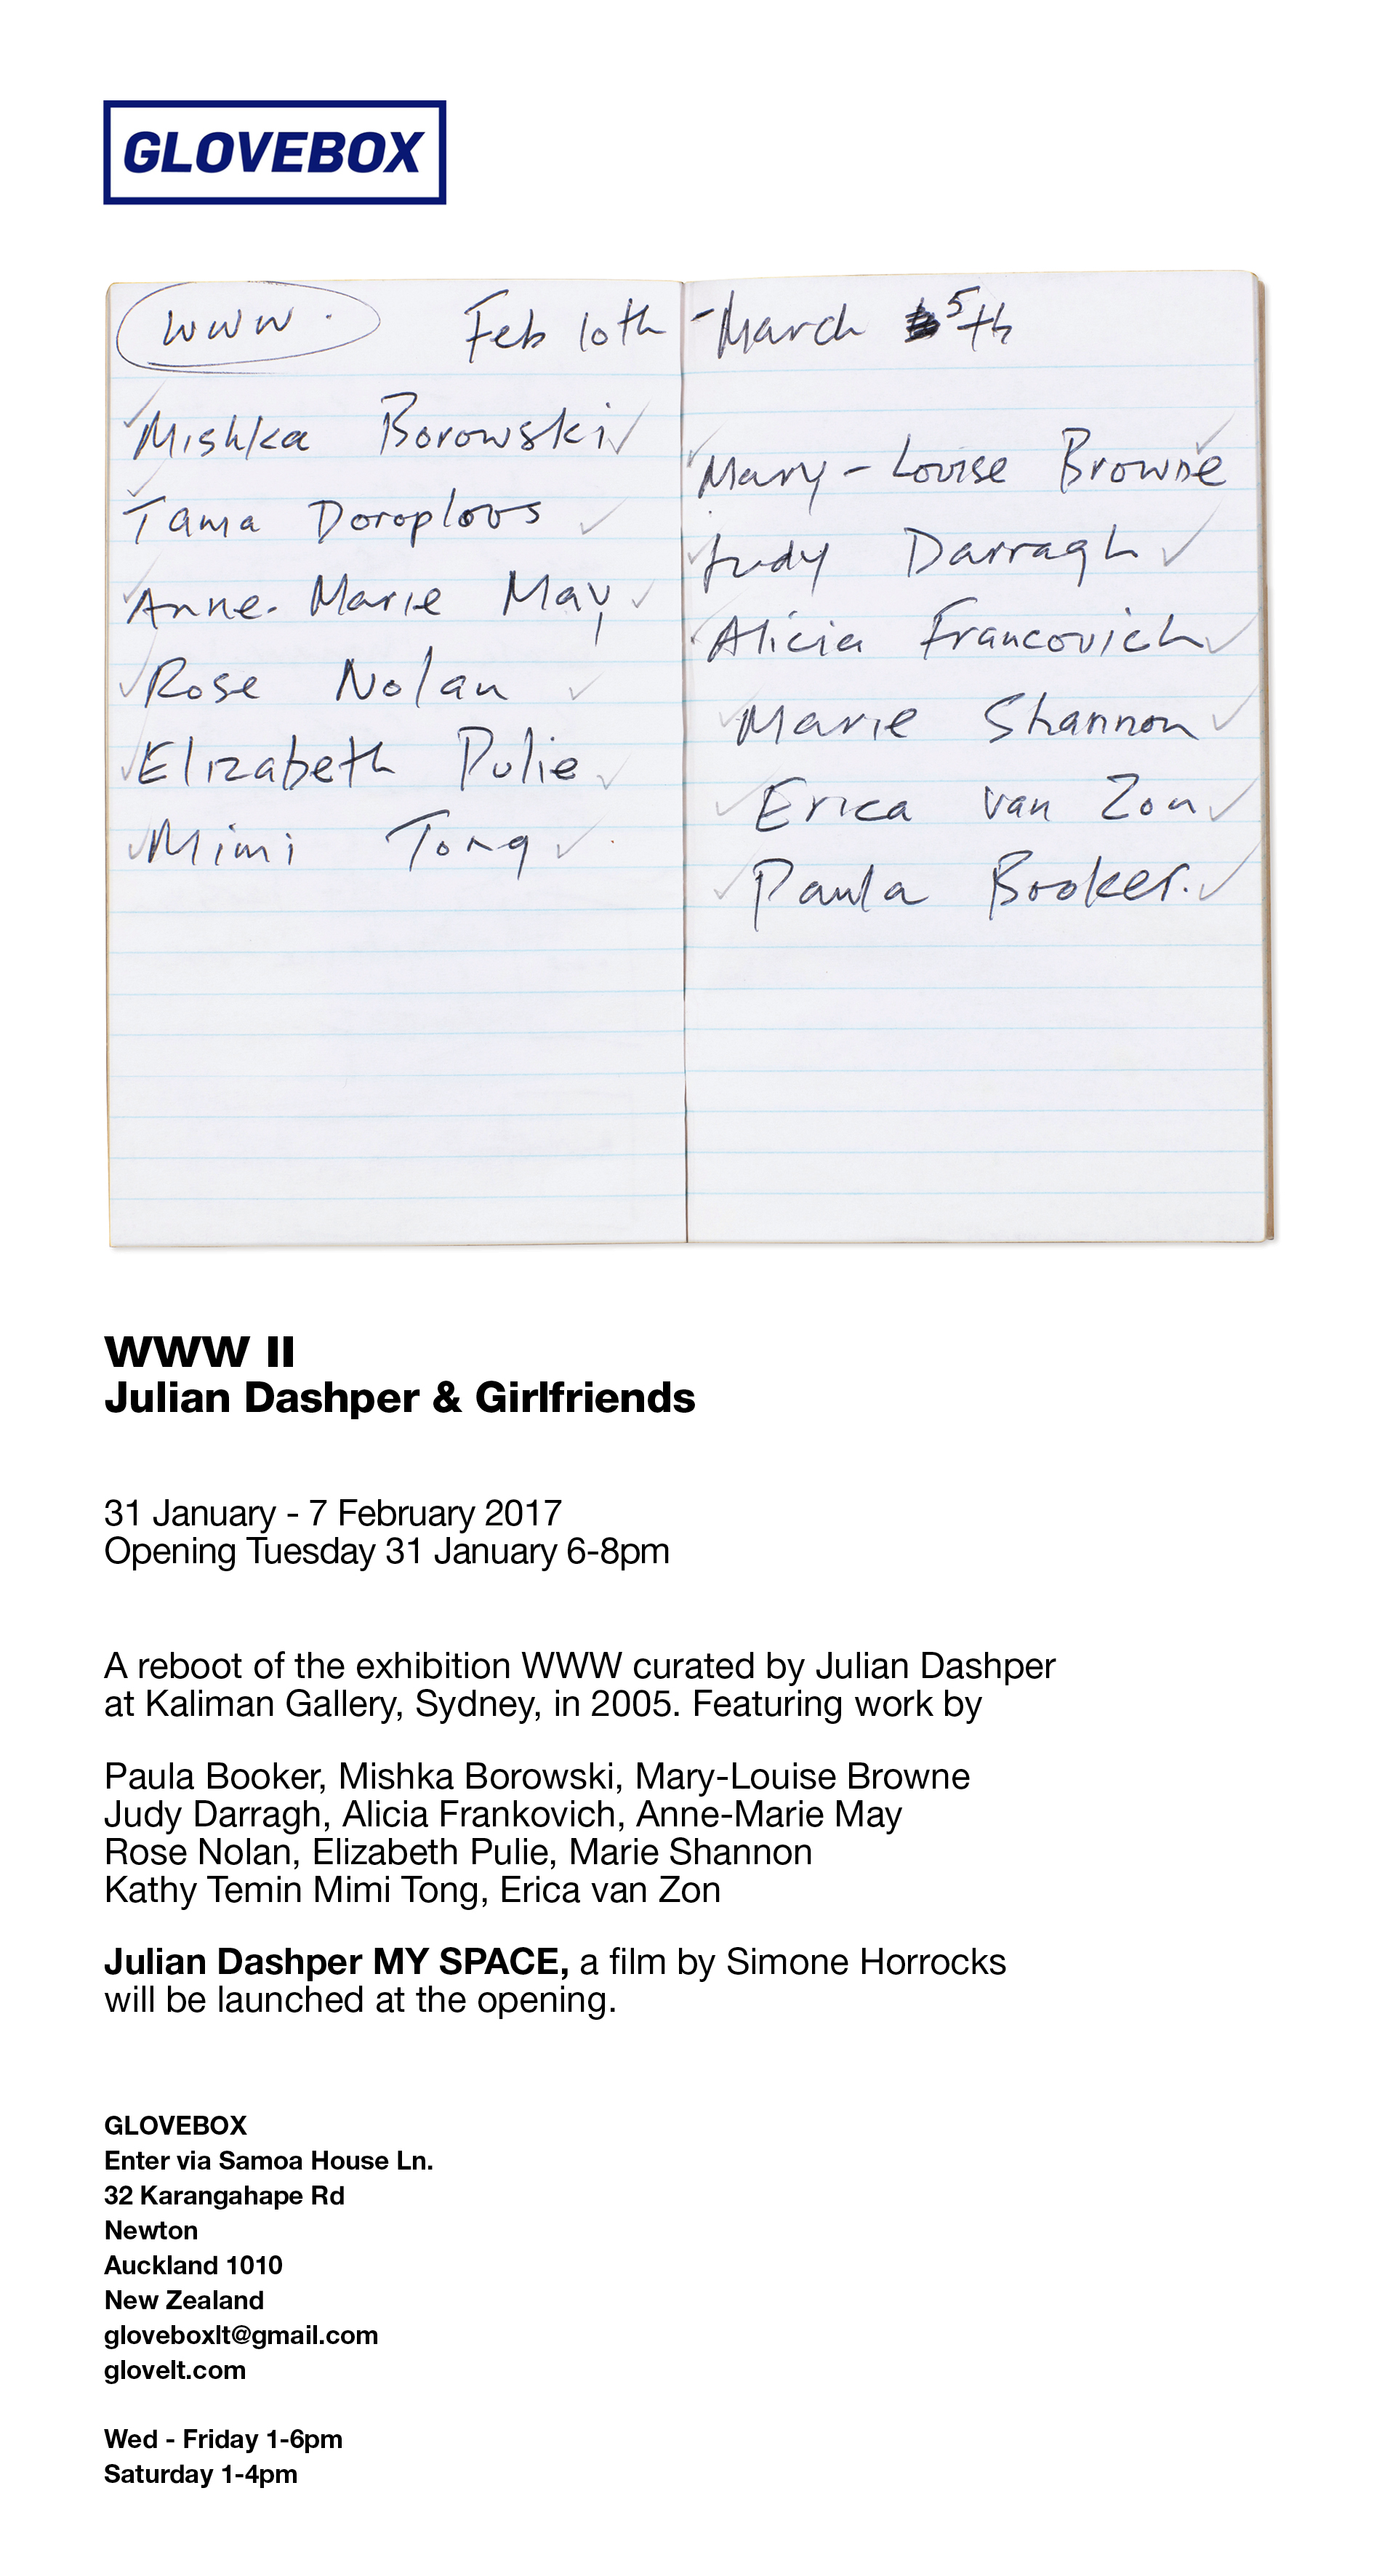 GLOVEBOX
www.
Feb 10th - March 5th
Mishka Borowski
Tama Doroploos
Anne-Marie May
Rose Nolan
Elizabeth Pulie
Mimi Tong
Mary-Louise Browne
Judy Darragh
Alicia Francovich
Marie Shannon
Erica van Zon
Paula Booker.
WWW II
Julian Dashper & Girlfriends
31 January - 7 February 2017
Opening Tuesday 31 January 6-8pm
A reboot of the exhibition WWW curated by Julian Dashper
at Kaliman Gallery, Sydney, in 2005. Featuring work by
Paula Booker, Mishka Borowski, Mary-Louise Browne
Judy Darragh, Alicia Frankovich, Anne-Marie May
Rose Nolan, Elizabeth Pulie, Marie Shannon
Kathy Temin Mimi Tong, Erica van Zon
Julian Dashper MY SPACE, a film by Simone Horrocks
will be launched at the opening.
GLOVEBOX
Enter via Samoa House Ln.
32 Karangahape Rd
Newton
Auckland 1010
New Zealand
gloveboxlt@gmail.com
glovelt.com
Wed - Friday 1-6pm
Saturday 1-4pm